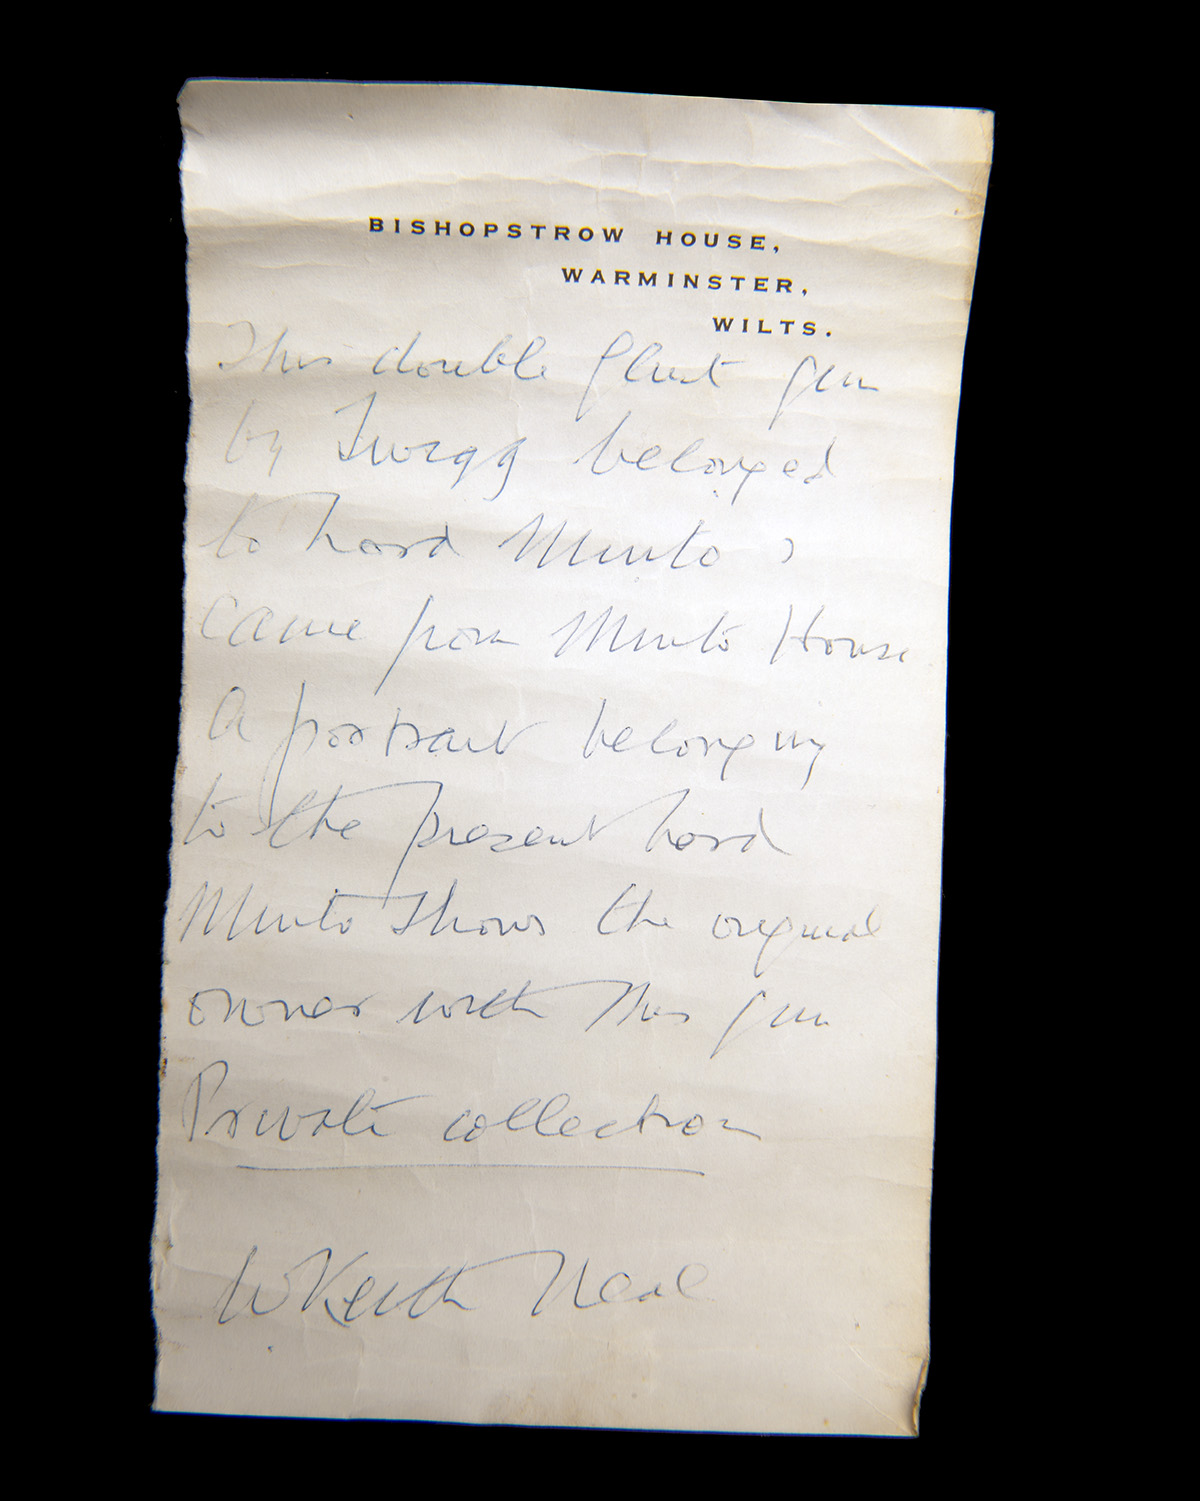 BISHOPSTROW HOUSE,
WARMINSTER,
WILTS.
This double flint gun
by Twigg belonged
to Lord Minto &
came from Minto House
A portrait belonging
to the present Lord
Minto shows the original
owner with this gun
Private collection
W Keith Neal